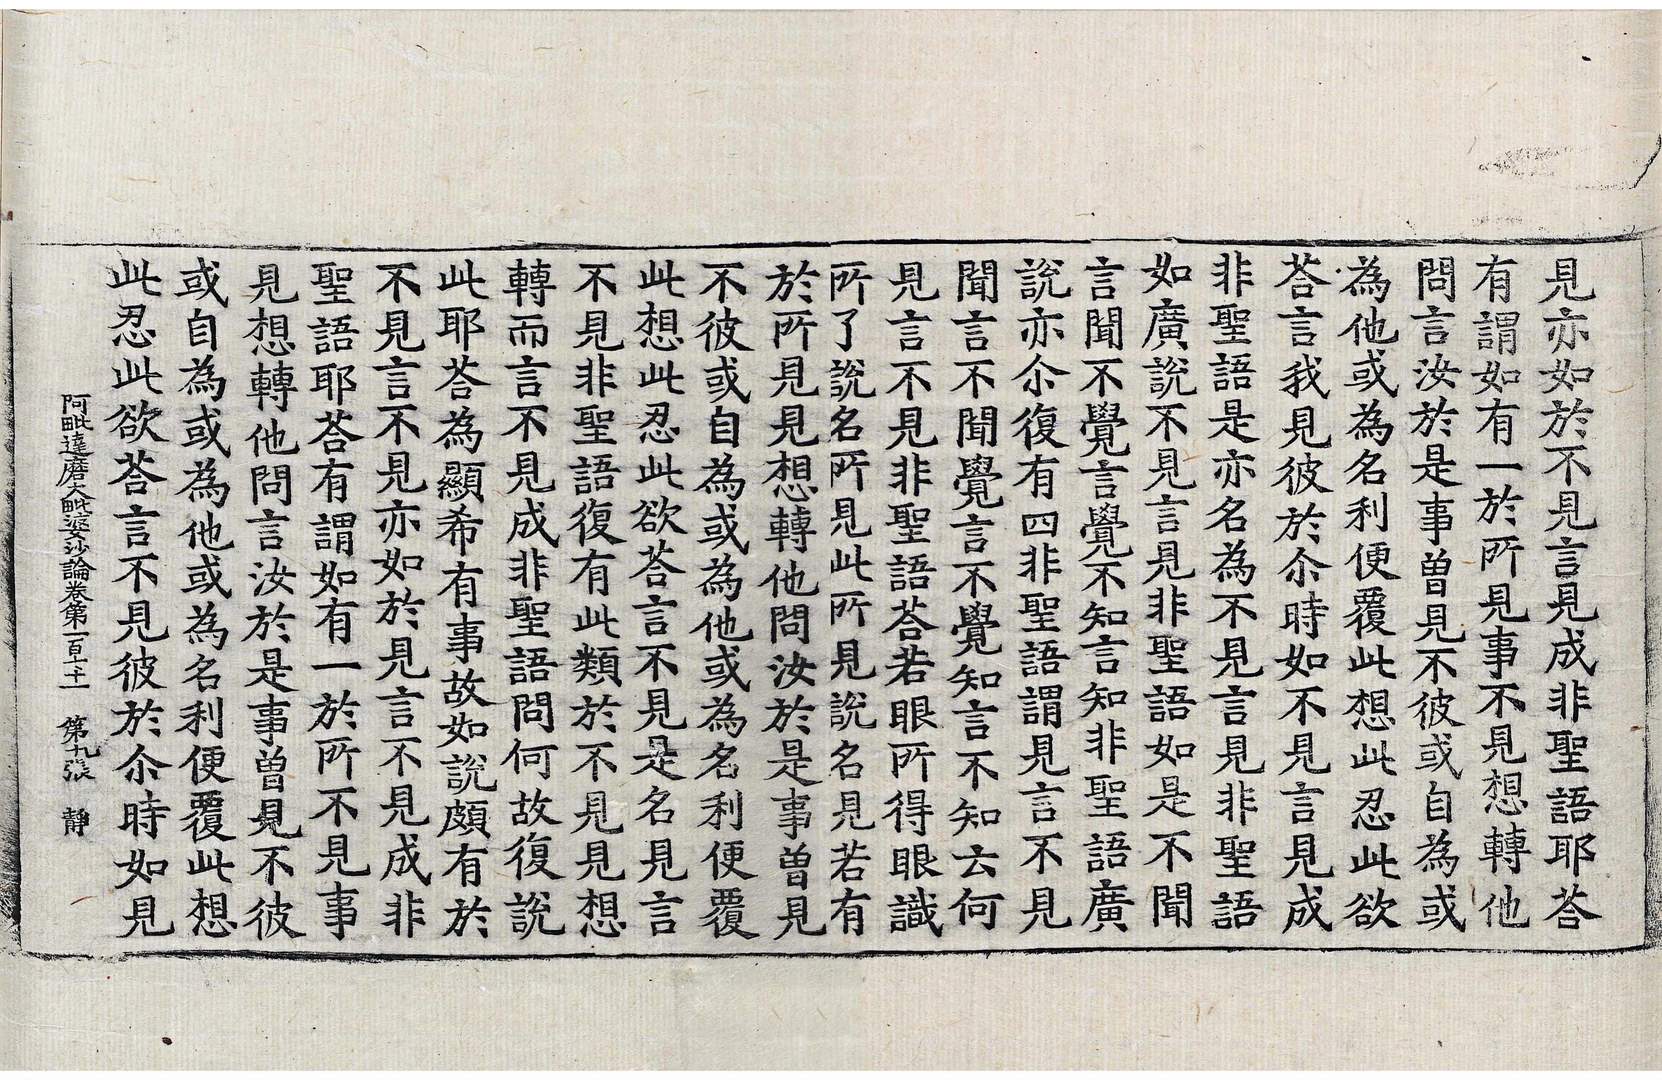 見亦如於不見言見成非聖語耶荅
有謂如有一於所見事不見想轉他
問言汝於是事曾見不彼或自為或
為他或為名利便覆此想此忍此欲
荅言我見彼於尒時如不見言見成
非聖語是亦名為不見言見非聖語
如廣說不見言見非聖語如是不聞
言聞不覺言覺不知言知非聖語廣
說亦尒復有四非聖語謂見言不見
聞言不聞覺言不覺知言不知云何
見言不見非聖語荅若眼所得眼識
所了說名所見此所見說名見若有
於所見見想轉他問汝於是事曾見
不彼或自為或為他或為名利便覆
此想此忍此欲荅言不見是名見言
不見非聖語復有此類於不見見想
轉而言不見成非聖語問何故復說
此耶荅為顯希有事故如說頗有於
不見言不見亦如於見言不見成非
聖語耶荅有謂如有一於所不見事
見想轉他問言汝於是事曾見不彼
或自為或為他或為名利便覆此想
此忍此欲荅言不見彼於尒時如見
阿毗達磨大毗婆沙論卷第一百七十一 第九張 靜